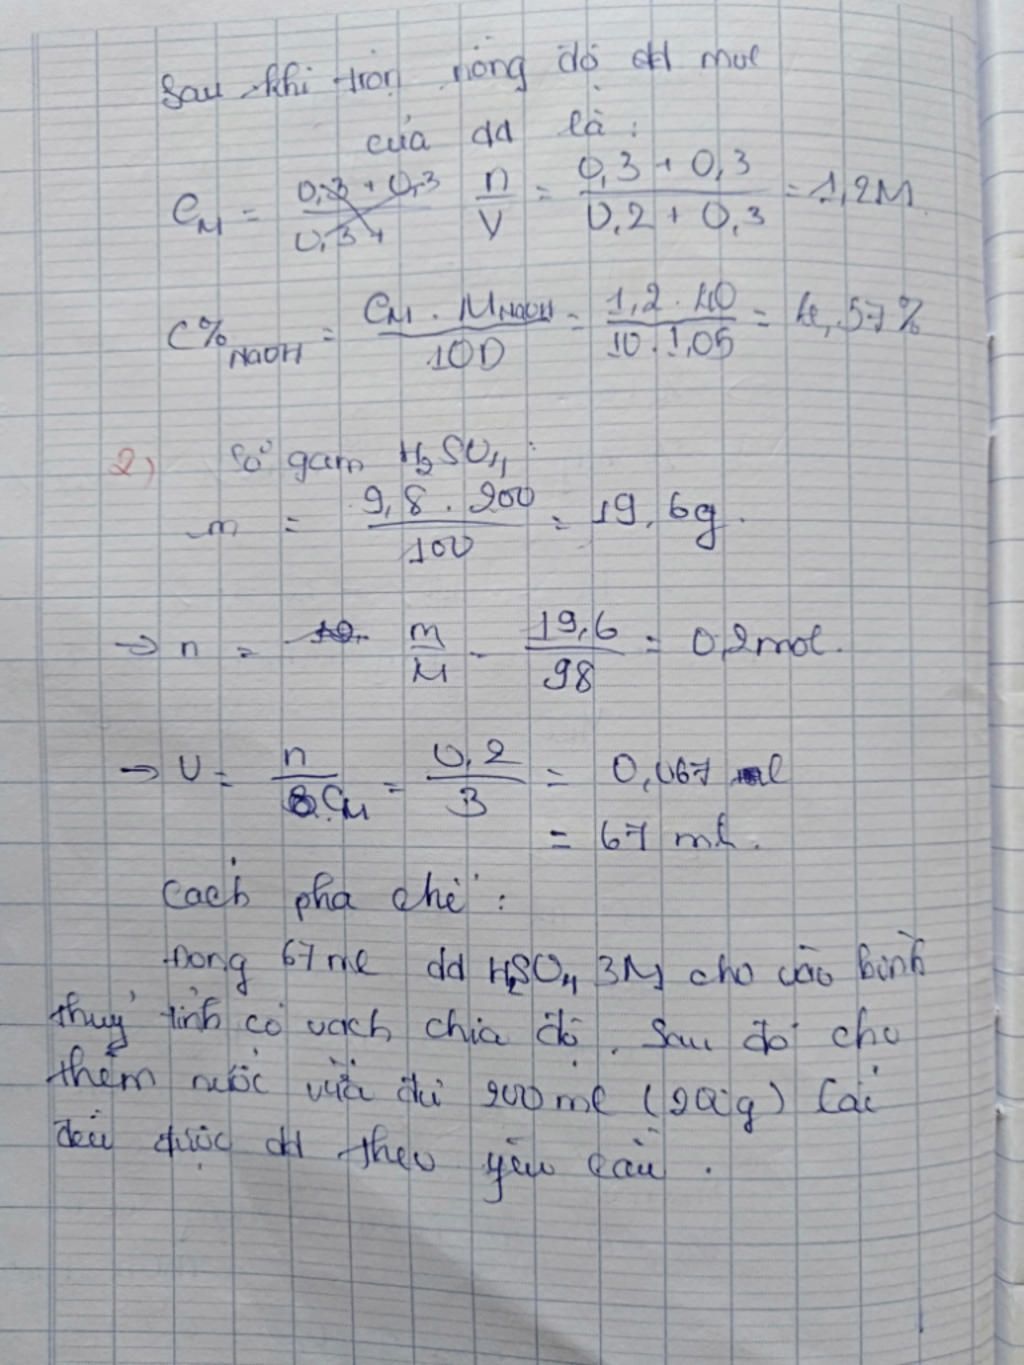 Sau khi trộn nồng độ dd mol
của dd là:
C_M = (0,3 + 0,3)/(0,3 + n/V = (0,3 + 0,3)/(0,2 + 0,3) = 1,2M.
C%_NaOH = (C_M . M_NaOH)/(10D) = (1,2 . 40)/(10 . 1,05) = 4,57%
2) Số gam H₂SO₄:
m = (9,8 . 200)/100 = 19,6g.
→ n = 19, m/M = 19,6/98 = 0,2mol.
→ V = n/C_M = 0,2/3 = 0,067 l
= 67 ml.
Cách pha chế:
Đong 67 ml dd H₂SO₄ 3M cho vào bình
thuỷ tinh có vạch chia độ. Sau đó cho
thêm nước vừa đủ 200 ml (200g) lắc
đều được dd theo yêu cầu.